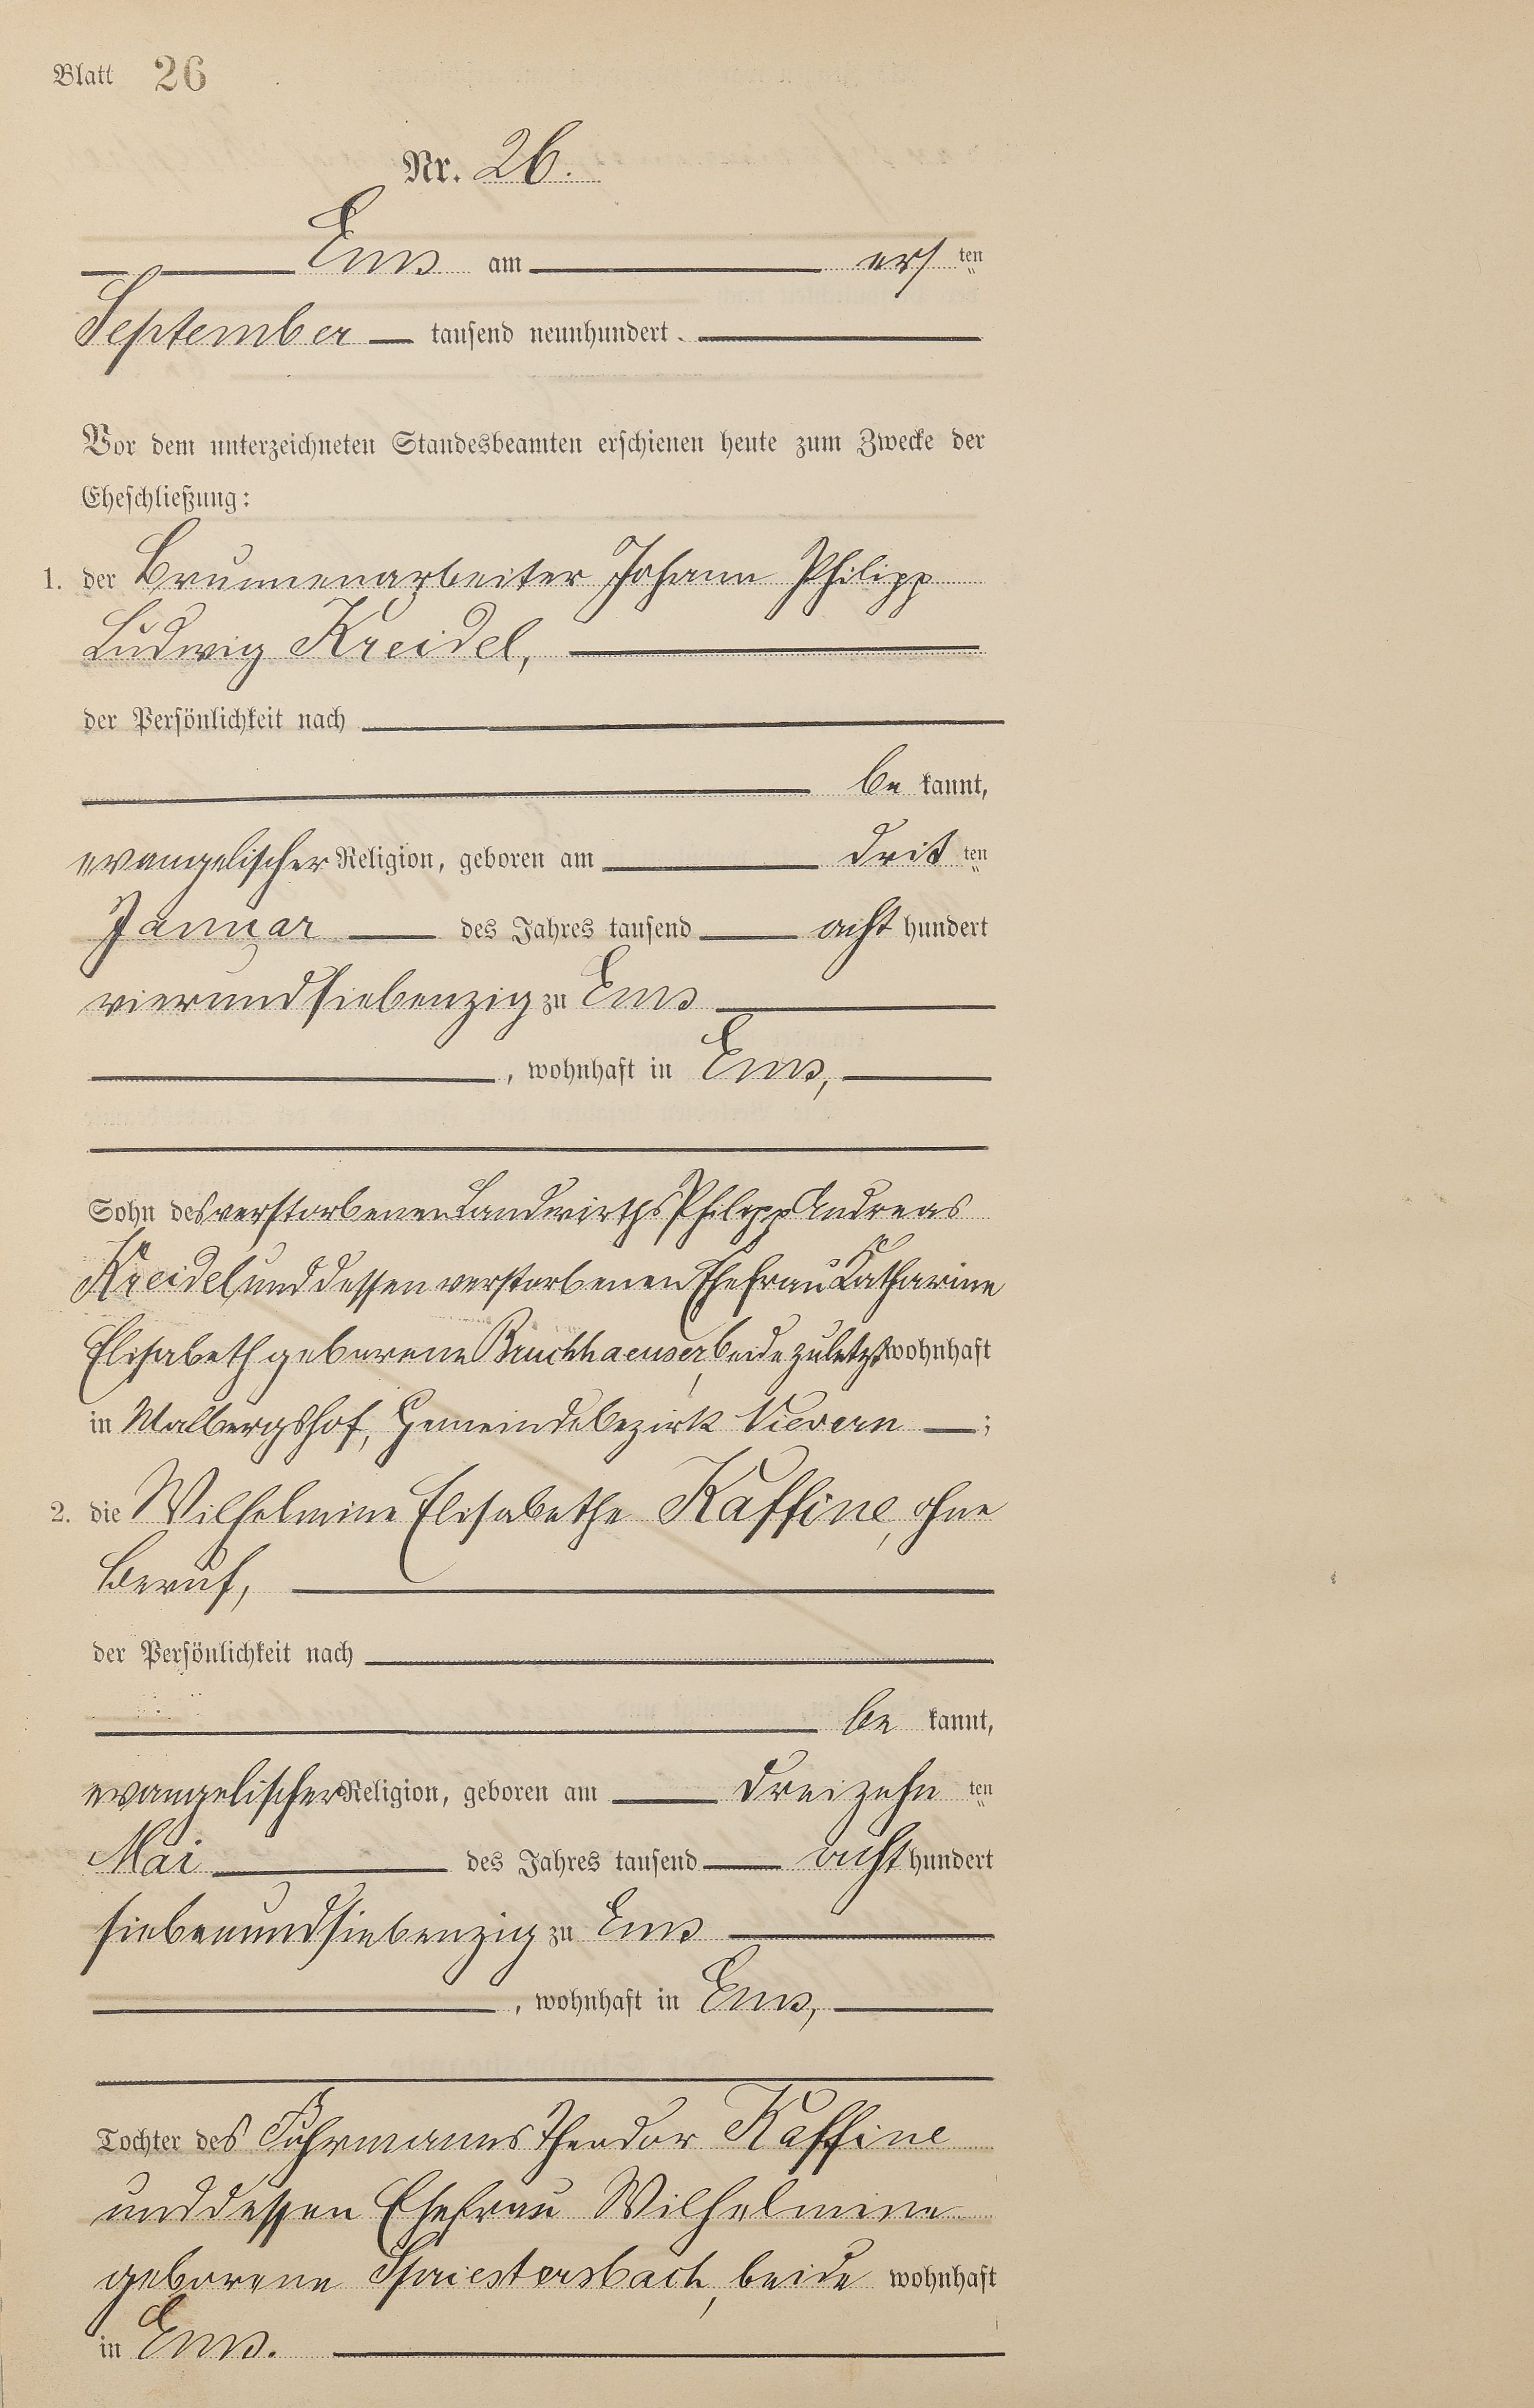 Blatt 26
Nr. 26.
Ems am ersten
September tausend neunhundert.
Vor dem unterzeichneten Standesbeamten erschienen heute zum Zwecke der
Eheschließung:
1. der Brunnenarbeiter Johann Philipp
Ludwig Kreidel,
der Persönlichkeit nach
be kannt,
evangelischer Religion, geboren am dritten
Januar des Jahres tausend acht hundert
vierundsiebenzig zu Ems
, wohnhaft in Ems,
Sohn des verstorbenen Landwirths Philipp Andreas
Kreidel und dessen verstorbenen Ehefrau Katharine
Elisabeth geborene Bruchhaeuser, beide zuletzt wohnhaft
in Malbergshof, Gemeindebezirk Nievern ;
2. die Wilhelmine Elisabethe Kaffine, ohne
Beruf,
der Persönlichkeit nach
be kannt,
evangelischer Religion, geboren am dreizehn ten
Mai des Jahres tausend acht hundert
siebenundsiebenzig zu Ems
, wohnhaft in Ems,
Tochter des Fuhrmanns Theodor Kaffine
und dessen Ehefrau Wilhelmine
geborene Spriestersbach, beide wohnhaft
in Ems.